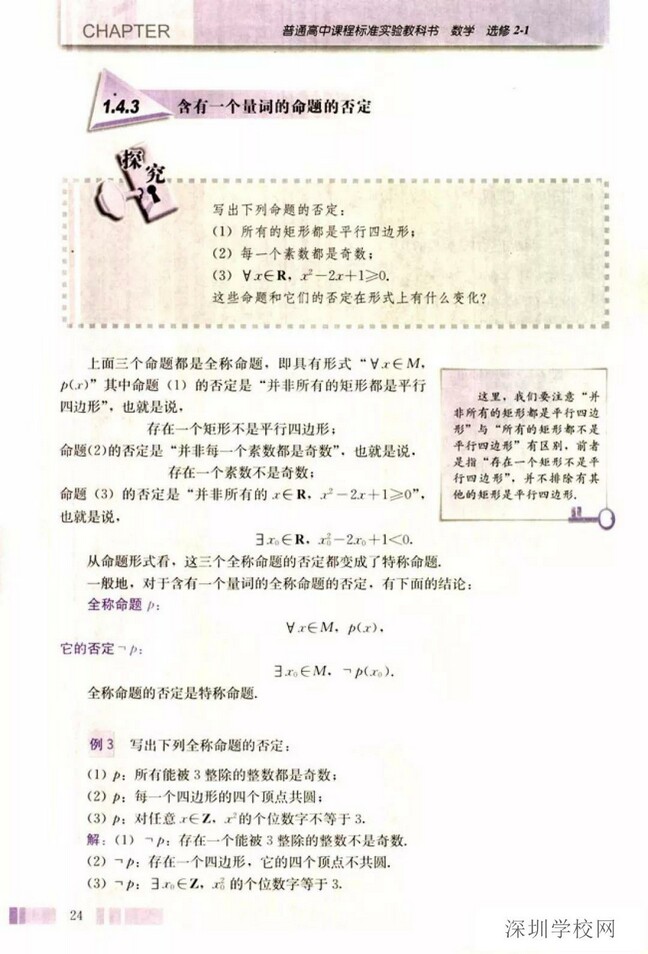 CHAPTER
普通高中课程标准实验教科书 数学 选修 2-1
1.4.3 含有一个量词的命题的否定
探究
写出下列命题的否定：
(1) 所有的矩形都是平行四边形；
(2) 每一个素数都是奇数；
(3) ∀x∈R，x²−2x+1≥0.
这些命题和它们的否定在形式上有什么变化？
上面三个命题都是全称命题，即具有形式“∀x∈M，
p(x)”其中命题（1）的否定是“并非所有的矩形都是平行
四边形”，也就是说，
存在一个矩形不是平行四边形；
命题(2)的否定是“并非每一个素数都是奇数”，也就是说，
存在一个素数不是奇数；
命题（3）的否定是“并非所有的 x∈R，x²−2x+1≥0”，
也就是说，
∃x₀∈R，x₀²−2x₀+1<0.
从命题形式看，这三个全称命题的否定都变成了特称命题.
一般地，对于含有一个量词的全称命题的否定，有下面的结论：
全称命题 p：
∀x∈M，p(x)，
它的否定¬p：
∃x₀∈M，¬p(x₀).
全称命题的否定是特称命题.
这里，我们要注意“并
非所有的矩形都是平行四边
形”与“所有的矩形都不是
平行四边形”有区别，前者
是指“存在一个矩形不是平
行四边形”，并不排除有其
他的矩形是平行四边形.
例 3 写出下列全称命题的否定：
(1) p：所有能被 3 整除的整数都是奇数；
(2) p：每一个四边形的四个顶点共圆；
(3) p：对任意 x∈Z，x²的个位数字不等于 3.
解：(1) ¬p：存在一个能被 3 整除的整数不是奇数.
(2) ¬p：存在一个四边形，它的四个顶点不共圆.
(3) ¬p：∃x₀∈Z，x₀² 的个位数字等于 3.
24
深圳学校网